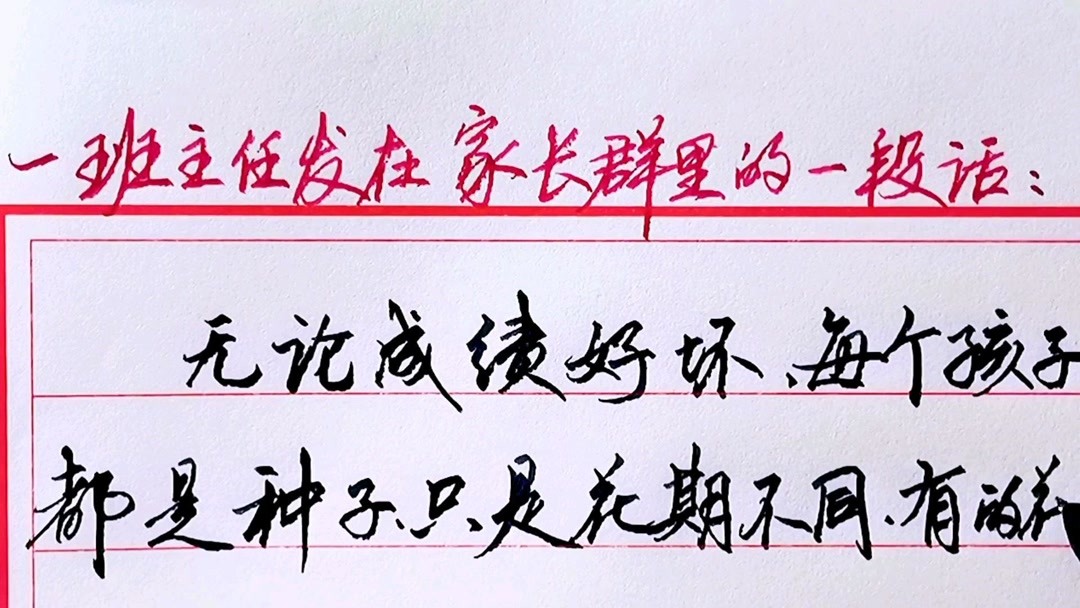 一班主任发在家长群里的一段话：
无论成绩好坏、每个孩子
都是种子、只是花期不同、有的花